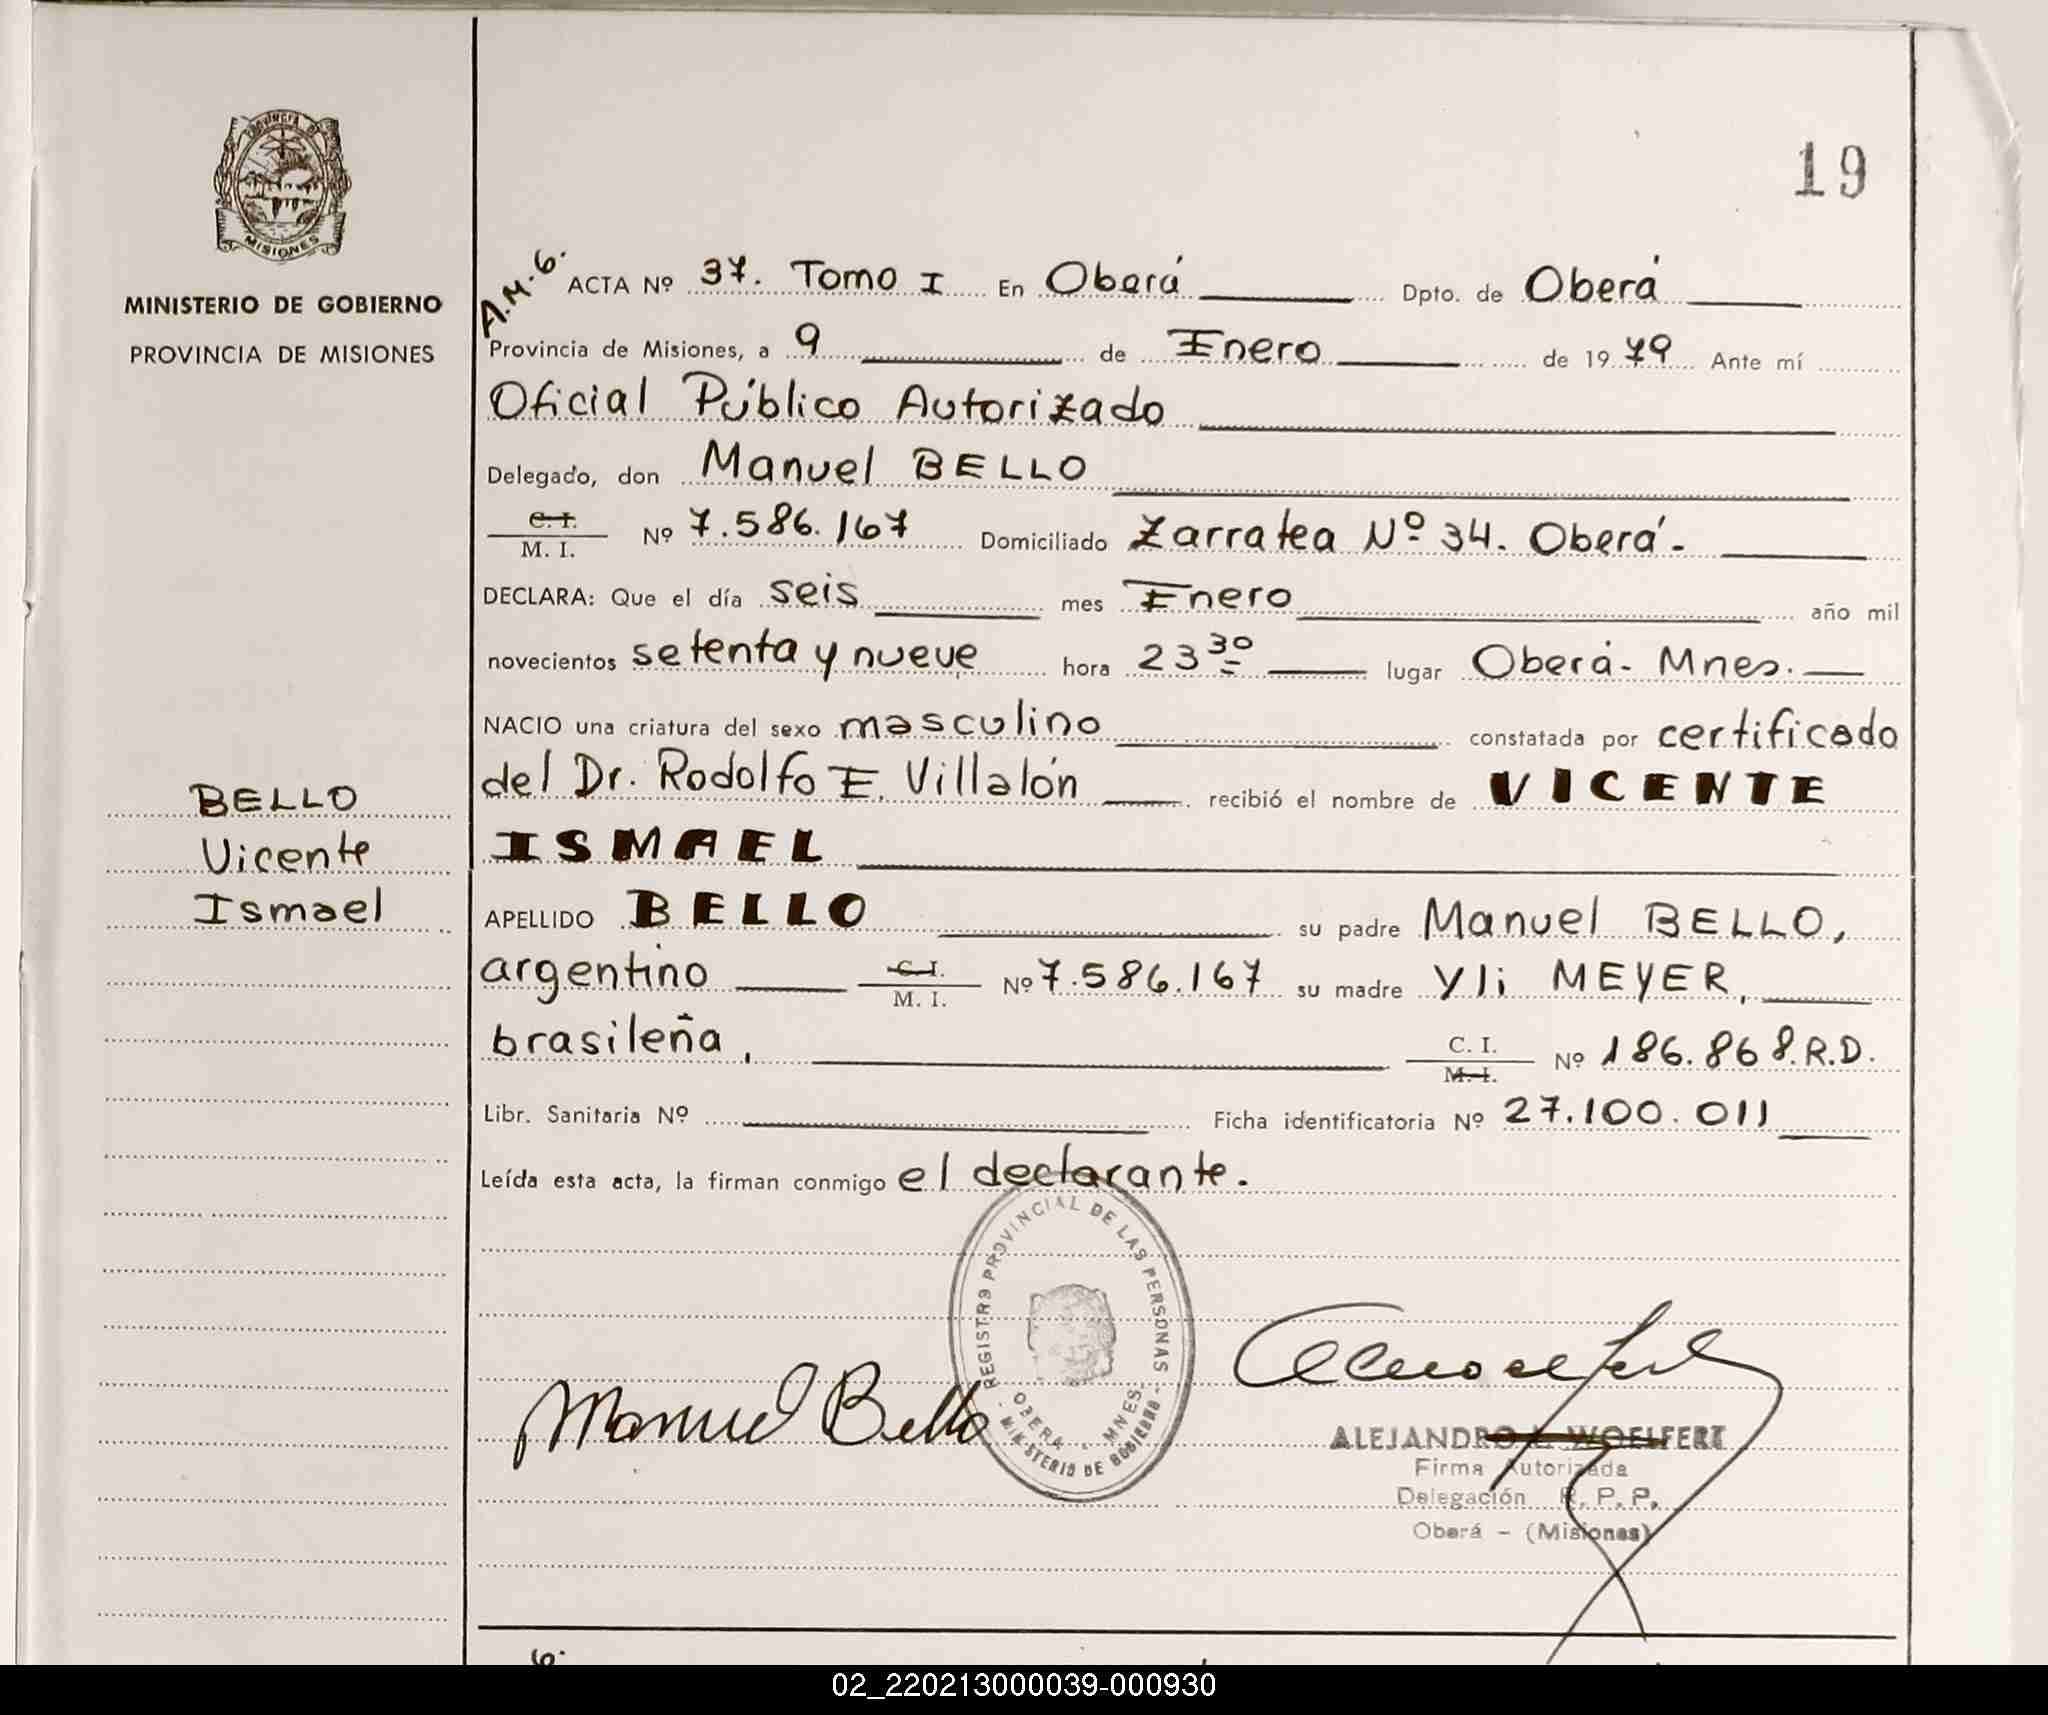 PROVINCIA DE
MISIONES
MINISTERIO DE GOBIERNO
PROVINCIA DE MISIONES
BELLO
Vicente
Ismael
19
A.M.G.
ACTA Nº 37. Tomo I En Oberá Dpto. de Oberá
Provincia de Misiones, a 9 de Enero de 1979 Ante mí
Oficial Público Autorizado
Delegado, don Manuel BELLO
C. I.
M. I. Nº 7.586.167 Domiciliado Zarratea Nº 34. Oberá.-
DECLARA: Que el día seis mes Enero año mil
novecientos setenta y nueve hora 23 30 lugar Oberá- Mnes.
NACIO una criatura del sexo masculino constatada por certificado
del Dr. Rodolfo E. Villalón recibió el nombre de VICENTE
ISMAEL
APELLIDO BELLO su padre Manuel BELLO,
argentino C. I. M. I. Nº 7.586.167 su madre Yli MEYER,
brasileña, C. I. M. I. Nº 186.868.R.D.
Libr. Sanitaria Nº Ficha identificatoria Nº 27.100.011
Leída esta acta, la firman conmigo el declarante.
REGISTRO PROVINCIAL DE LAS PERSONAS
OBERA - MNES
- MINISTERIO DE GOBIERNO -
Manuel Bello
ALEJANDRO A. WOELFERT
Firma Autorizada
Delegación R. P. P.
Oberá - (Misiones)
02_220213000039-000930